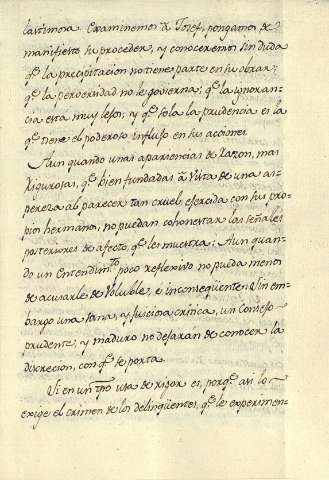 lastimosa. Examinemos à Josef, pongamos de
manifiesto su proceder, y conoceremos sin duda
qᵉ la precipitacion no tiene parte en su obrar;
qᵉ la perversidad no le govierna; qᵉ la ignoran-
cia esta muy lejos; y qᵉ sola la prudencia es la
qᵉ tiene el poderoso influjo en sus acciones.
Aun quando unas apariencias de razon, mas
rigurosas, qᵉ bien fundadas à vista de una as-
pereza al parecer tan cruel, exercida con sus pro-
pios hermanos, no puedan cohonestar las señales
posteriores de afecto, qᵉ les muestra: Aun quan-
do un Entendimᵗᵒ poco reflexivo no pueda menos
de acusarle de Voluble, e inconseqüente: Sin em-
bargo una sana, y juiciosa critica, un Consejo
prudente, y maduro no dejarán de conocer la
discrecion, con qᵉ se porta.
Si en un tpo usa de rigor es, porqᵉ asi lo
exige el crimen de los delinqüentes, qᵉ le experimen-